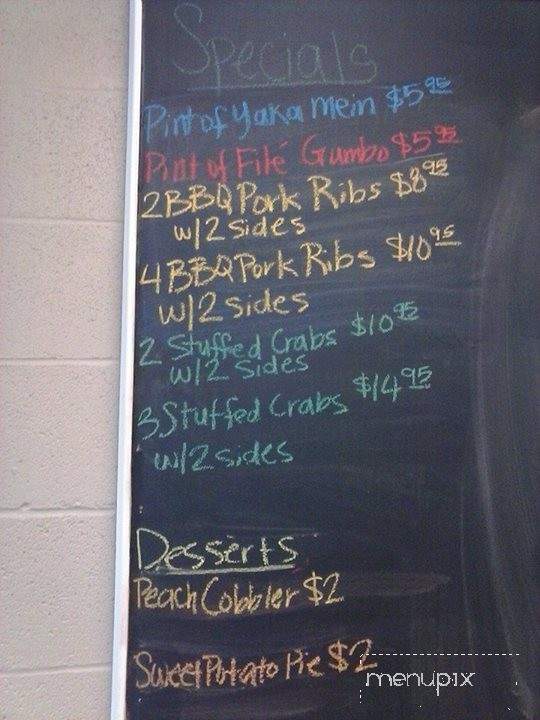 Specials
Pint of Yaka Mein $5.95
Pint of Filé Gumbo $5.95
2 BBQ Pork Ribs $8.95
w/2 sides
4 BBQ Pork Ribs $10.95
w/2 sides
2 Stuffed Crabs $10.95
w/2 sides
3 Stuffed Crabs $14.95
w/2 sides
Desserts
Peach Cobbler $2
Sweet Potato Pie $2
menupix